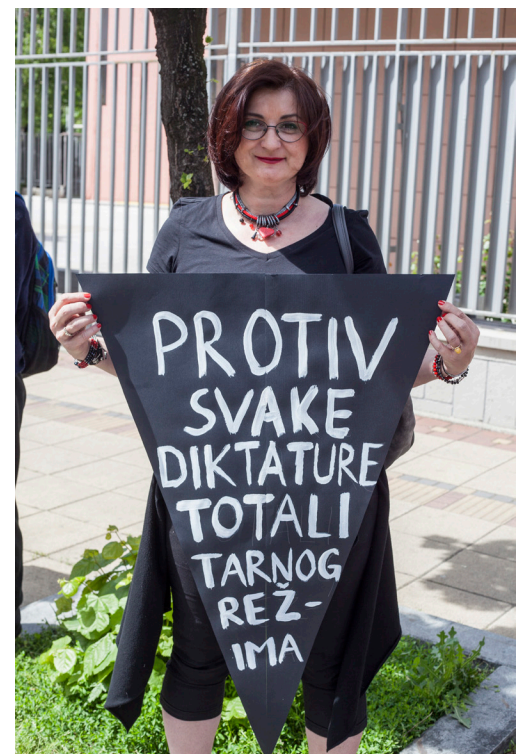 PROTIV
SVAKE
DIKTATURE
TOTALI
TARNOG
REŽ-
IMA